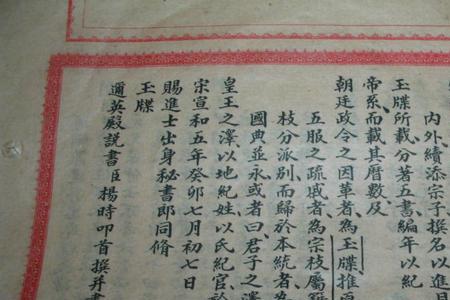 內外續添宗子撰名以進
玉牒所載分著五書編年以紀
帝系而載其曆數及
朝廷政令之因革者為玉牒推
五服之疏戚者為宗枝屬
枝分派別而歸於本統者為
國典並永或者曰君子之澤
皇王之澤以地紀姓以氏紀官
宗宣和五年癸卯七月初七日
賜進士出身秘書郎同脩
玉牒
邇英殿説書臣楊時叩首撰并書